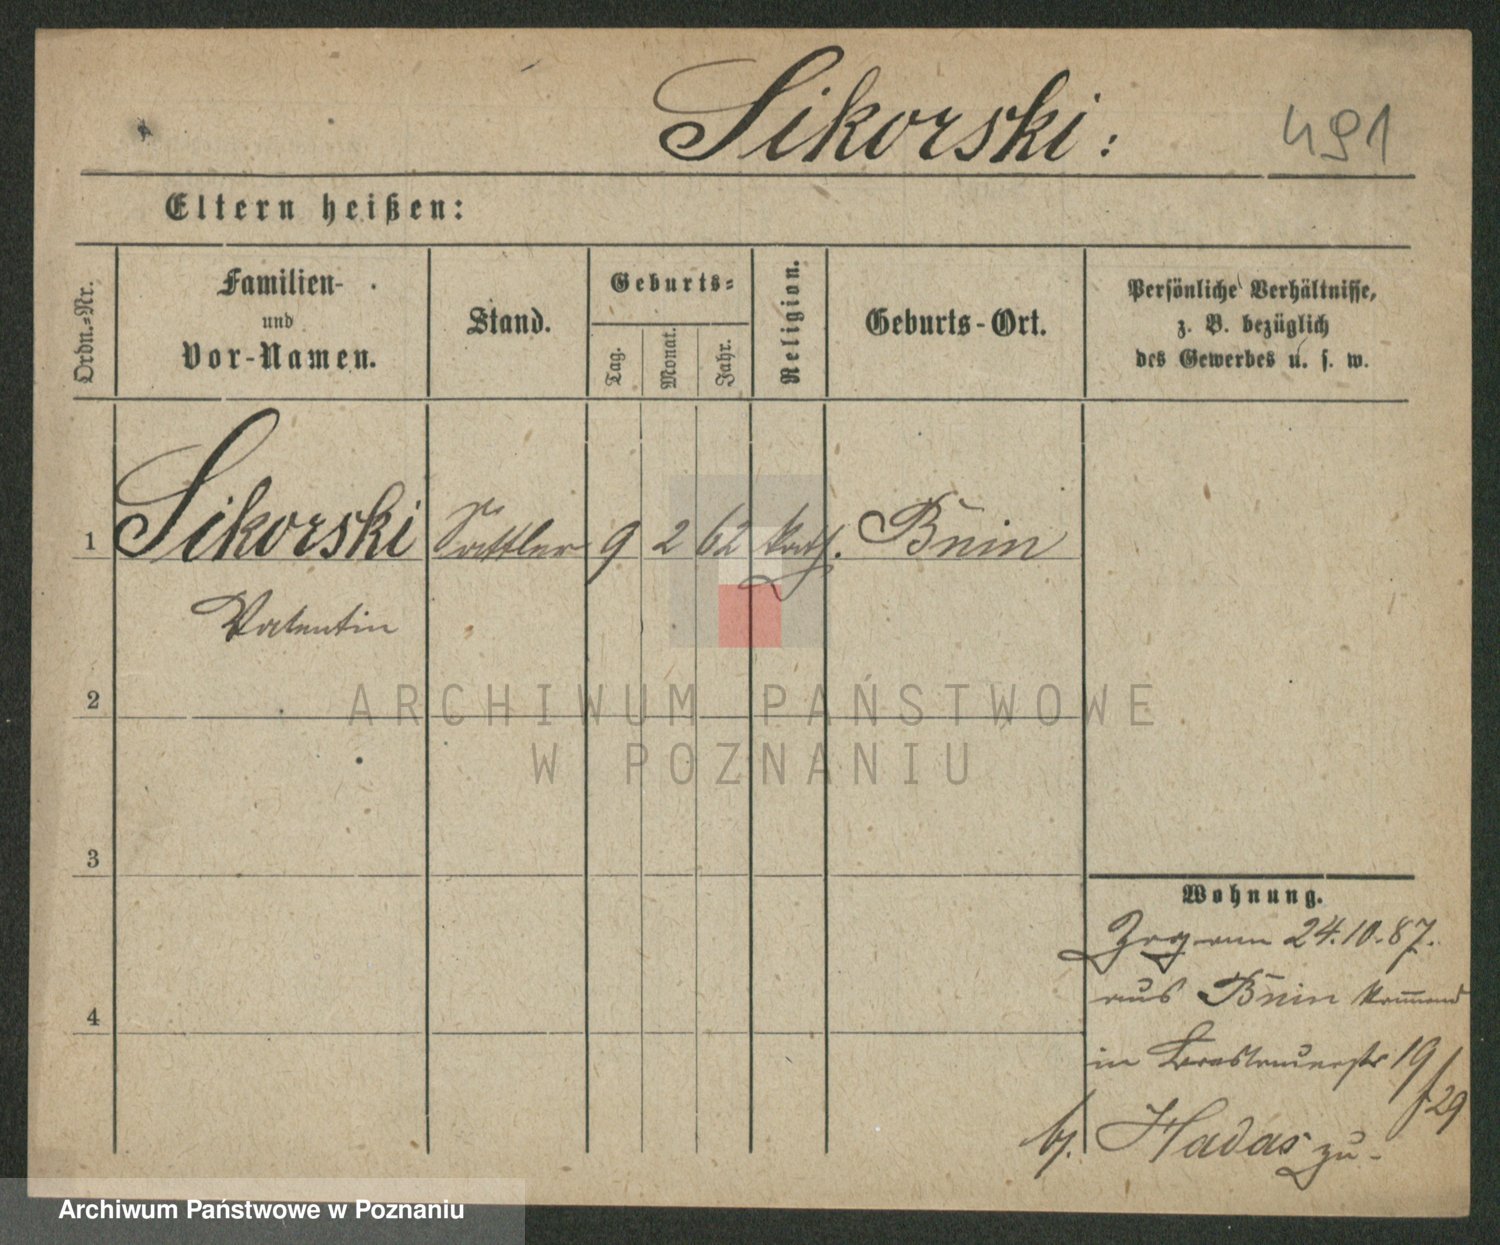 Sikorski:
491
Eltern heißen:
Ordn.-Nr.
Familien-
und
Vor-Namen.
Stand.
Geburts-
Tag.
Monat.
Jahr.
Religion.
Geburts-Ort.
Persönliche Verhältnisse,
z. B. bezüglich
des Gewerbes u. s. w.
1 Sikorski Sattler 9 2 62 kath. Bnin
Valentin
2
3
4
Wohnung.
Zog am 24.10.87.
aus Bnin kommend
in 19
f 29
bj. Hadas zu-
ARCHIWUM PAŃSTWOWE
W POZNANIU
Archiwum Państwowe w Poznaniu